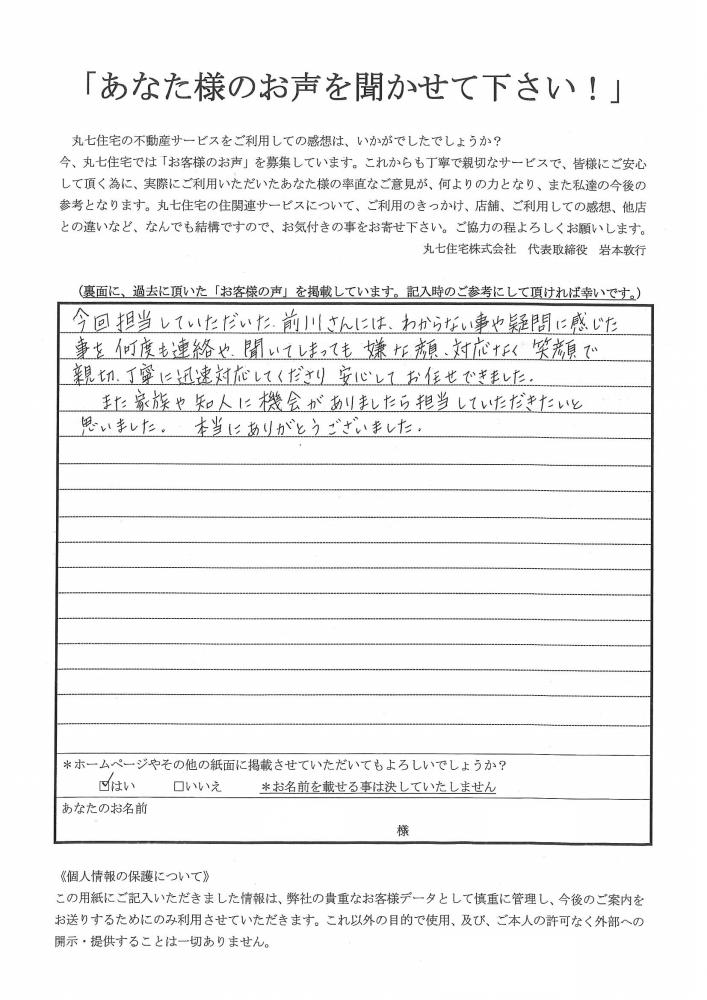 「あなた様のお声を聞かせて下さい！」
丸七住宅の不動産サービスをご利用しての感想は、いかがでしたでしょうか？
今、丸七住宅では「お客様のお声」を募集しています。これからも丁寧で親切なサービスで、皆様にご安心
して頂く為に、実際にご利用いただいたあなた様の率直なご意見が、何よりの力となり、また私達の今後の
参考となります。丸七住宅の住関連サービスについて、ご利用のきっかけ、店舗、ご利用しての感想、他店
との違いなど、なんでも結構ですので、お気付きの事をお寄せ下さい。ご協力の程よろしくお願いします。
丸七住宅株式会社　代表取締役　岩本敦行
（裏面に、過去に頂いた「お客様の声」を掲載しています。記入時のご参考にして頂ければ幸いです。）
今回担当していただいた、前川さんには、わからない事や疑問に感じた
事を何度も連絡や、聞いてしまっても嫌な顔、対応なく笑顔で
親切、丁寧に迅速対応してくださり安心してお任せできました。
また家族や知人に機会がありましたら担当していただきたいと
思いました。　本当にありがとうございました。
＊ホームページやその他の紙面に掲載させていただいてもよろしいでしょうか？
☑はい　□いいえ　＊お名前を載せる事は決していたしません
あなたのお名前
様
《個人情報の保護について》
この用紙にご記入いただきました情報は、弊社の貴重なお客様データとして慎重に管理し、今後のご案内を
お送りするためにのみ利用させていただきます。これ以外の目的で使用、及び、ご本人の許可なく外部への
開示・提供することは一切ありません。